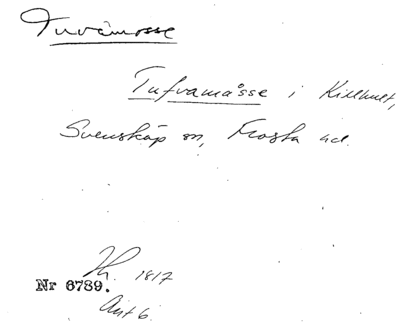 Tuvamosse
Tufvamåsse i Killhult,
Svensköp sn, Frosta hd.
Th. 1817
Nr 6789.
Akt 6